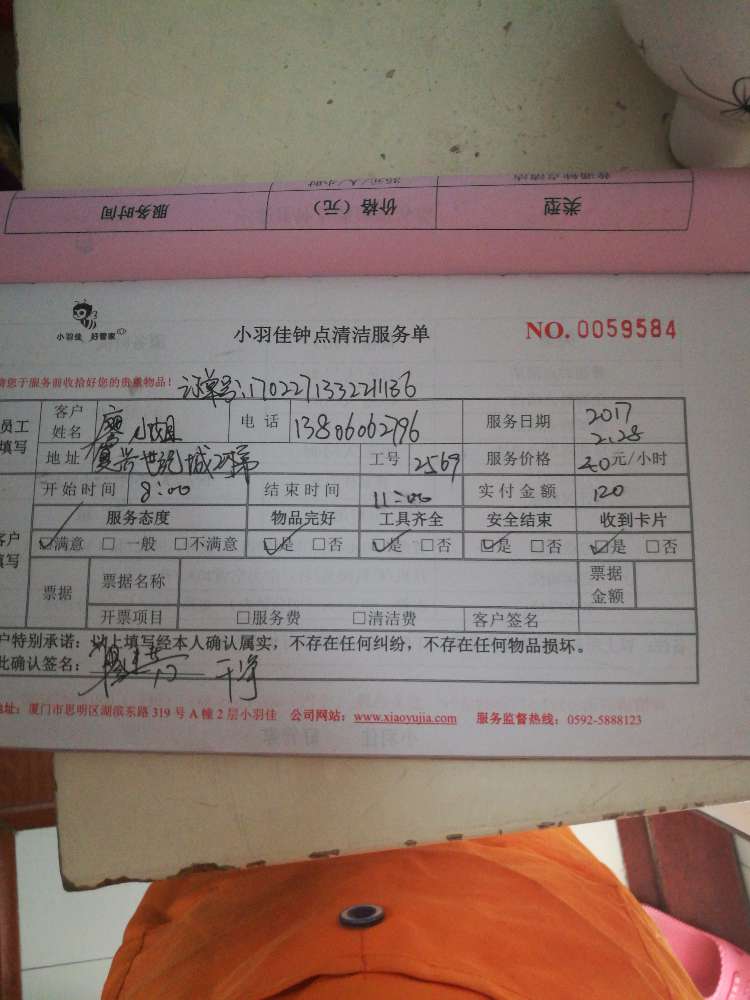 类型 价格（元） 服务时间
小羽佳 好管家
小羽佳钟点清洁服务单
NO. 0059584
请您于服务前收拾好您的贵重物品！
订单号:170227133221136
员工填写
客户姓名 廖小姐 电话 13806062796 服务日期 2017 2.28
地址 复兴世纪城 工号 2569 服务价格 40元/小时
开始时间 8:00 结束时间 11:00 实付金额 120
客户填写
服务态度 物品完好 工具齐全 安全结束 收到卡片
☑满意 □一般 □不满意 ☑是 □否 ☑是 □否 ☑是 □否 ☑是 □否
票据 票据名称 票据金额
开票项目 □服务费 □清洁费 客户签名
客户特别承诺：以上填写经本人确认属实，不存在任何纠纷，不存在任何物品损坏。
此确认签名： 干净
地址：厦门市思明区湖滨东路 319 号 A 幢 2 层小羽佳 公司网站：www.xiaoyujia.com 服务监督热线：0592-5888123